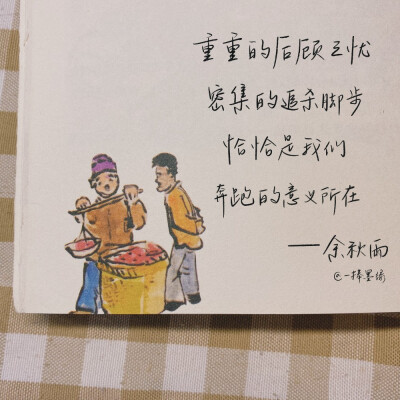 重重的后顾之忧
密集的追杀脚步
恰恰是我们
奔跑的意义所在
——余秋雨
@一捧墨绮